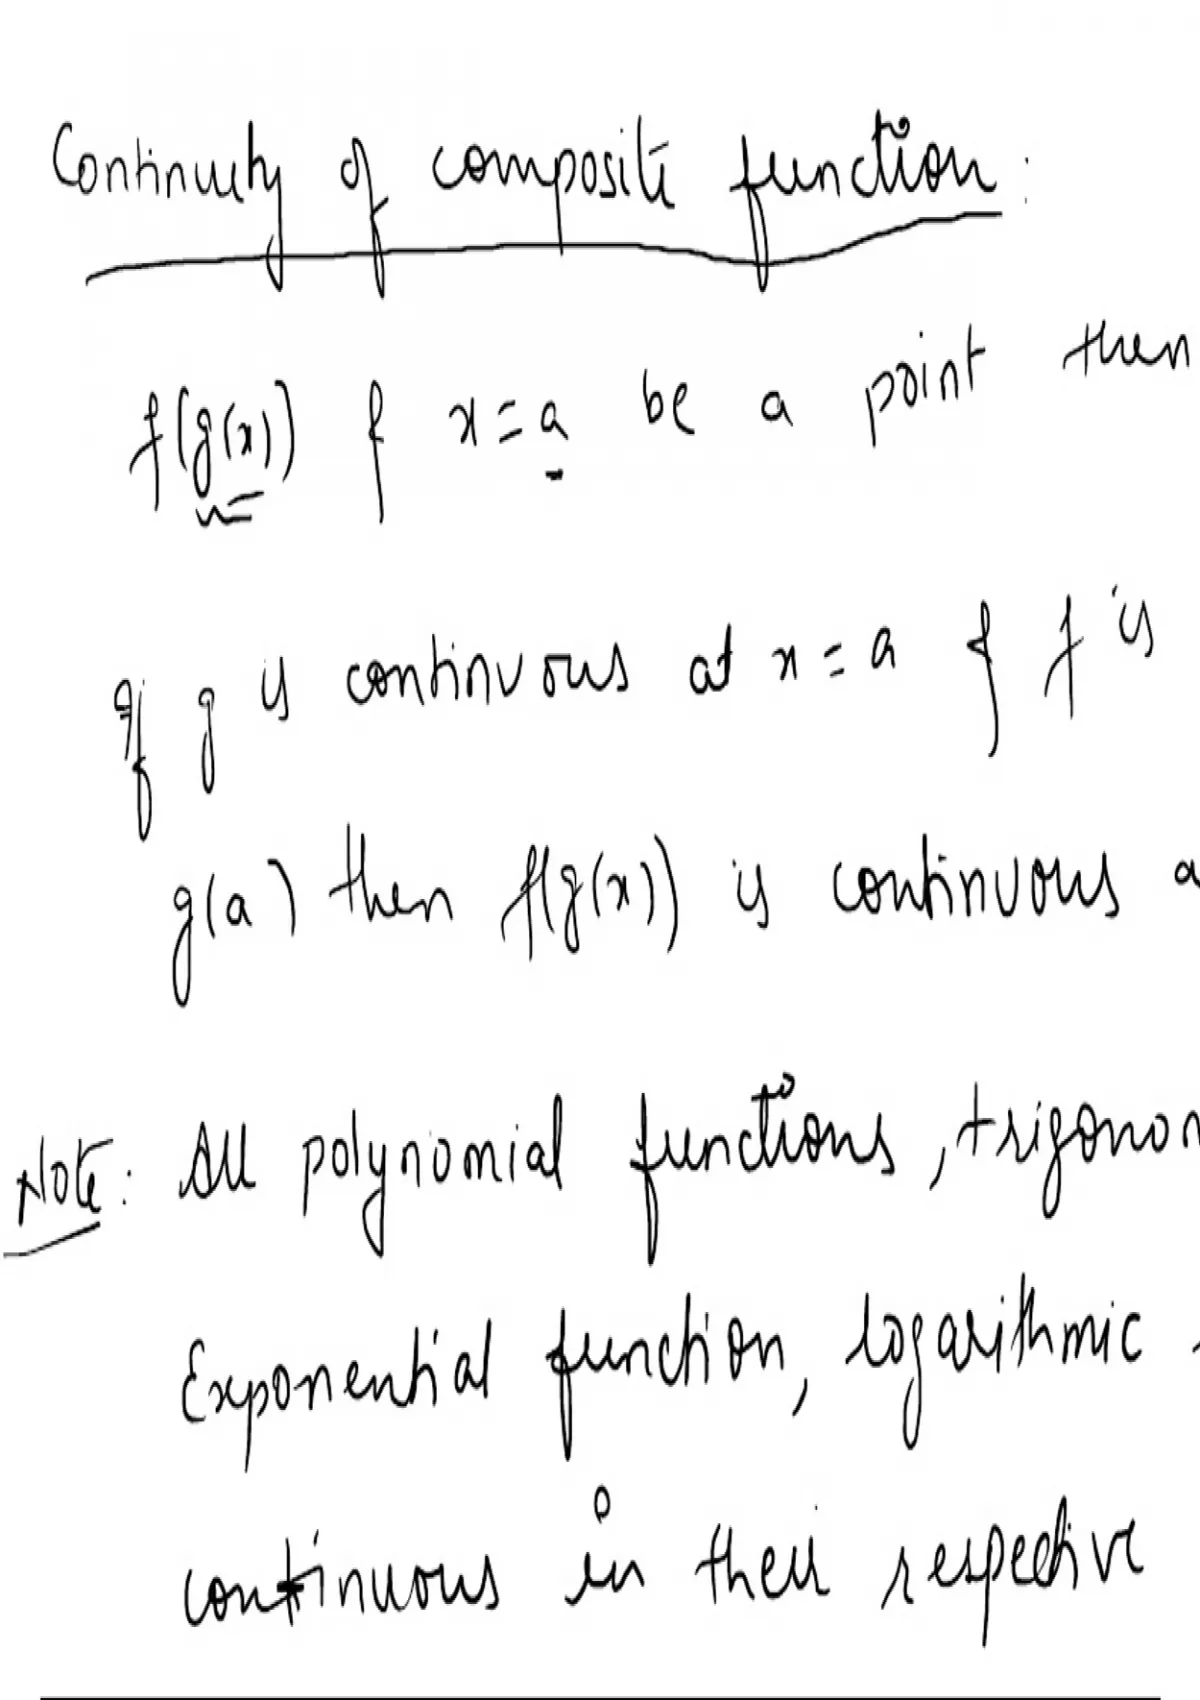 Continuity of composite function:
f(g(x)) & x = a be a point then
If g is continuous at x = a & f is
g(a) then f(g(x)) is continuous a
Note: All polynomial functions, trigonom
Exponential function, logarithmic
continuous in their respective